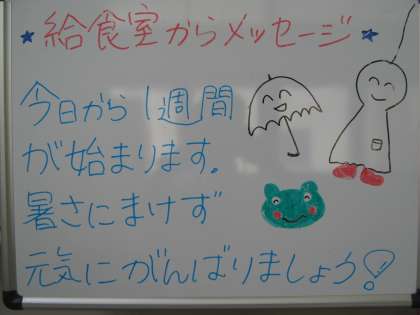 ★給食室からメッセージ★
今日から1週間
が始まります。
暑さにまけず
元気にがんばりましょう!